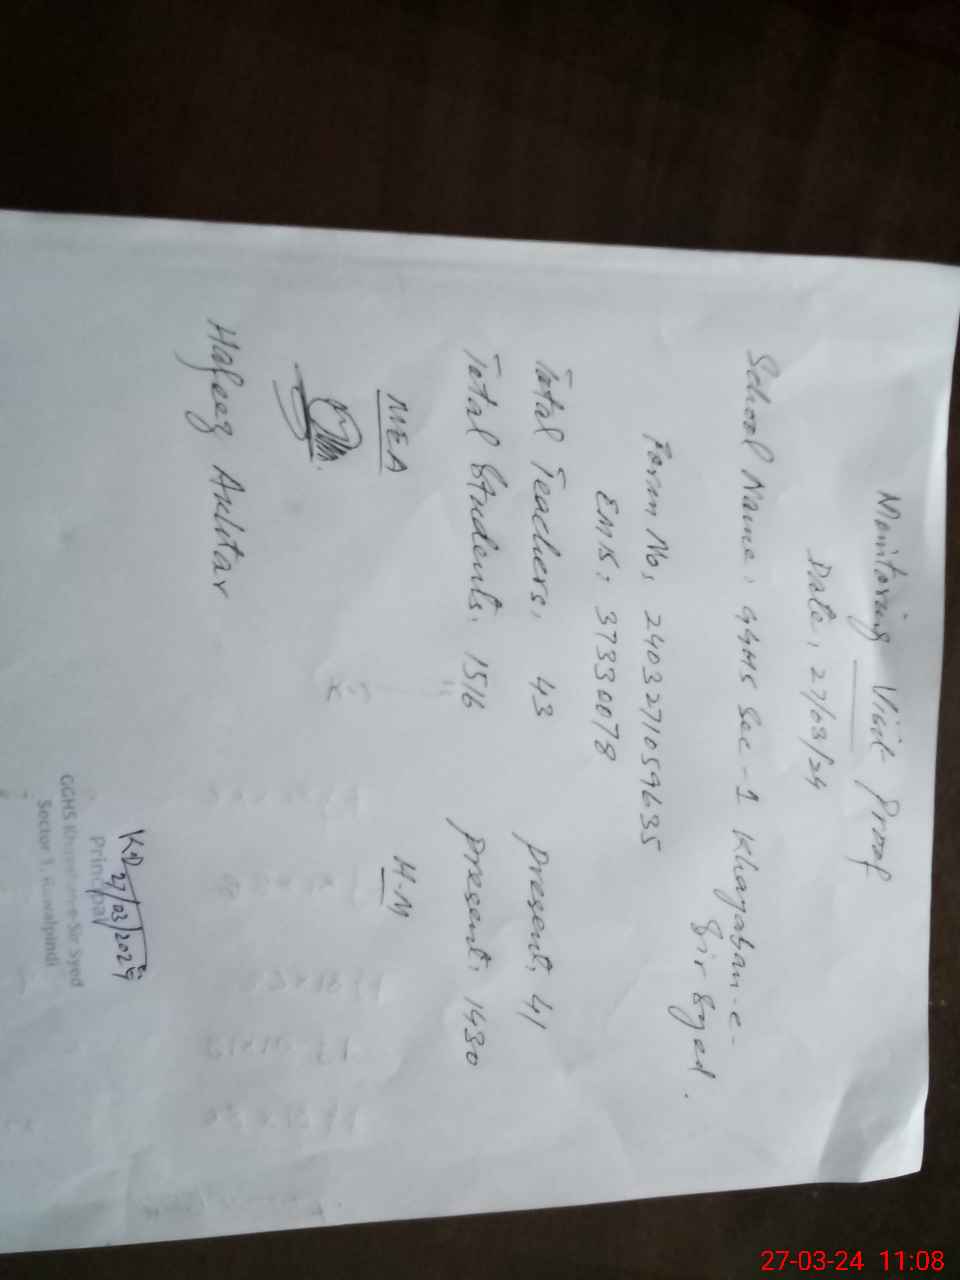 Monitoring Visit Proof
Date, 27/03/24
School Name, GGHS Sec-1 Khayaban-e-
Sir Syed.
Form No, 2403271059635
EMIS: 37330078
Total Teachers, 43 present, 41
Total Students, 1516 present, 1430
MEA H-M
Hafeez Akhtar
27/03/2024
Principal
GGHS Khayaban-e-Sir Syed
Sector 1, Rawalpindi
27-03-24 11:08